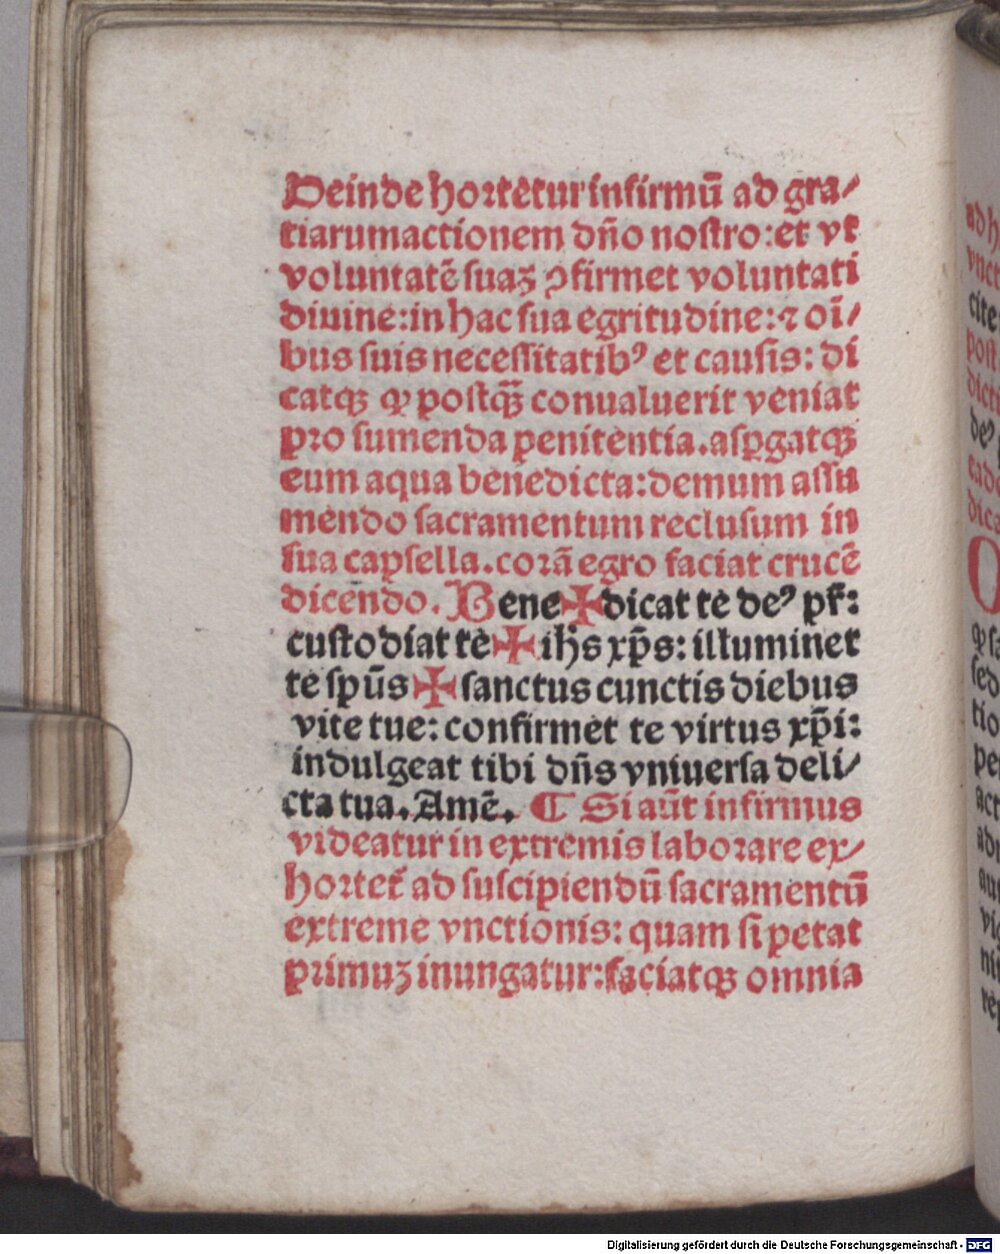 Deinde hortetur infirmū ad gra⸗
tiarumactionem dn̄o nostro: et vt
voluntatē suaꝫ ꝯfirmet voluntati
diuine: in hac sua egritudine: ⁊ oī⸗
bus suis necessitatibꝰ et causis: di
catqꝫ ꝙ postqꝫ̄ conualuerit veniat
pro sumenda penitentia. aspgatqꝫ
eum aqua benedicta: demum assu
mendo sacramentum reclusum in
sua capsella. corā egro faciat crucē
dicendo. Bene✠dicat te deꝰ pr̄:
custodiat te✠ ihs xp̄s: illuminet
te spūs✠ sanctus cunctis diebus
vite tue: confirmet te virtus xp̄i:
indulgeat tibi dn̄s vniuersa deli⸗
cta tua. Amē. ¶ Si aūt infirmus
videatur in extremis laborare ex⸗
hortet̄ ad suscipiendū sacramentū
extreme vnctionis: quam si petat
primuꝫ inungatur: faciatqꝫ omnia
ad h
cite
post
dict
Digitalisierung gefördert durch die Deutsche Forschungsgemeinschaft - DFG